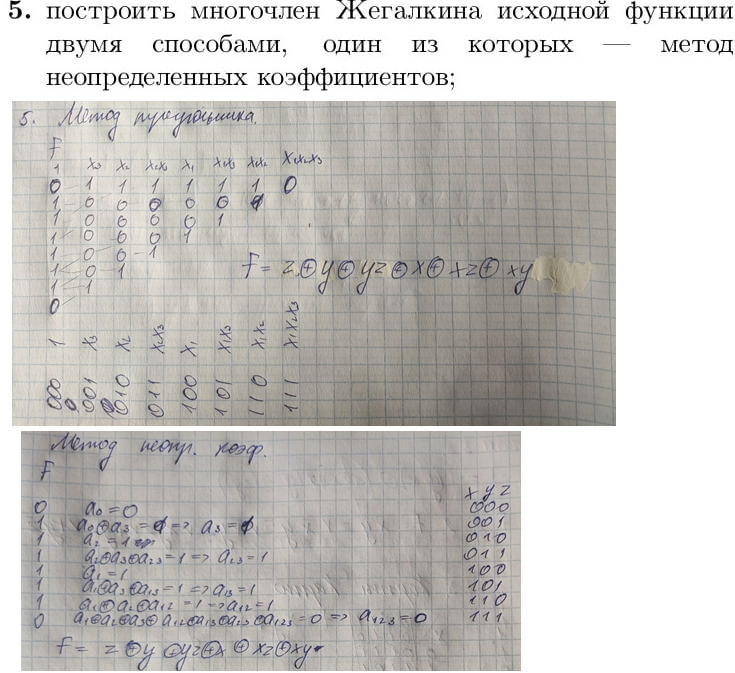 5. построить многочлен Жегалкина исходной функции
двумя способами, один из которых — метод
неопределенных коэффициентов;
5. Метод треугольника.
F
1 x₃ x₂ x₂x₃ x₁ x₁x₃ x₁x₂ x₁x₂x₃
0 1 1 1 1 1 1 0
1 0 0 0 0 0 1
1 0 0 0 0 1
1 0 0 0 1
1 0 0 1
1 0 1
1 1
0
F = z⊕y⊕yz⊕x⊕xz⊕xy
1 x₃ x₂ x₂x₃ x₁ x₁x₃ x₁x₂ x₁x₂x₃
000 001 010 011 100 101 110 111
Метод неопр. коэф.
F
x y z
0 a₀ = 0 000
1 a₀⊕a₃ = 1 => a₃ = 1 001
1 a₂ = 1 010
1 a₂⊕a₃⊕a₂₃ = 1 => a₂₃ = 1 011
1 a₁ = 1 100
1 a₁⊕a₃⊕a₁₃ = 1 => a₁₃ = 1 101
1 a₁⊕a₂⊕a₁₂ = 1 => a₁₂ = 1 110
0 a₁⊕a₂⊕a₃⊕a₁₂⊕a₁₃⊕a₂₃⊕a₁₂₃ = 0 => a₁₂₃ = 0 111
F = z⊕y⊕yz⊕x⊕xz⊕xy